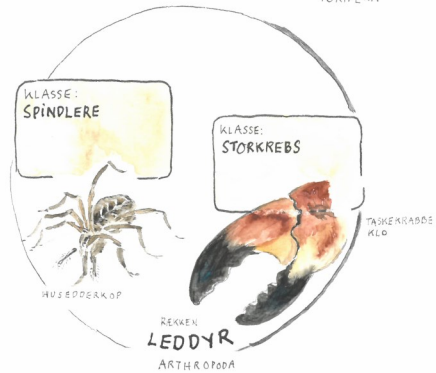 KLASSE:
SPINDLERE
KLASSE:
STORKREBS
TASKEKRABBE
KLO
HUSEDDERKOP
RÆKKEN
LEDDYR
ARTHROPODA